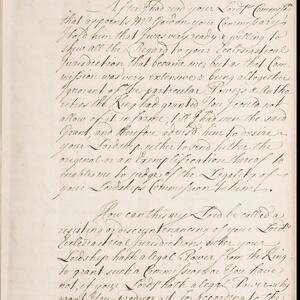 After I had read your Lordps Commission
that appoints Mr Gordon your Commissary
I told him that I was very ready & willing to
shew all the Regard to your Ecclesiastical
Jurisdiction that became me; but as that Com-
mission was very extensive & being altogether
Ignorant of the particular Powers & Autho-
rities the King had granted You I could not
allow of it in forme, till I had seen the said
Grant, and therefore advised him to desire
your Lordship either to send hither the
original or an Exemplification thereof to
enable me to judge of the Legality of
your Lordships Commission to him.
How can this my Lord be called a
resisting or discountenancing of your Lordps
Ecclesiastical Jurisdiction, either your
Lordship hath a legal Power from the King
to grant such a Commission or You have
not, if your Lordsp hath a legal Power why